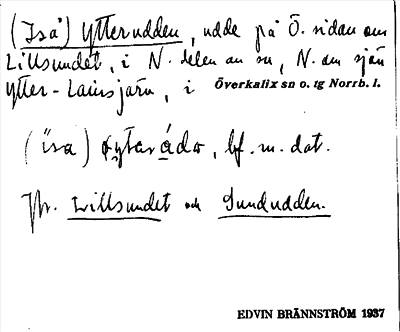 (Iså) Ytterudden, udde på Ö. sidan om
Lillsundet, i N. delen av sn, N. om sjön
Ytter-Lainsjärv, i Överkalix sn o. tg Norrb. l.
( isa) yterádo, bf. m. dat.
Jfr. Lillsundet och Sundudden.
EDVIN BRÄNNSTRÖM 1937